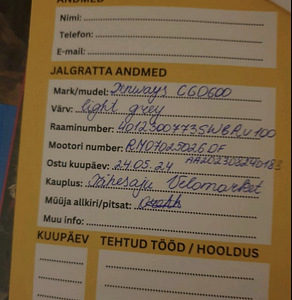 ANDMED
Nimi:
Telefon:
E-mail:
JALGRATTA ANDMED
Mark/mudel: Tenways CGO600
Värv: light grey
Raaminumber:
Mootori number: RM07025026DF
Ostu kuupäev: 24.05.24
Kauplus: Vihesaju Velomarket
Müüja allkiri/pitsat:
Muu info:
KUUPÄEV TEHTUD TÖÖD / HOOLDUS